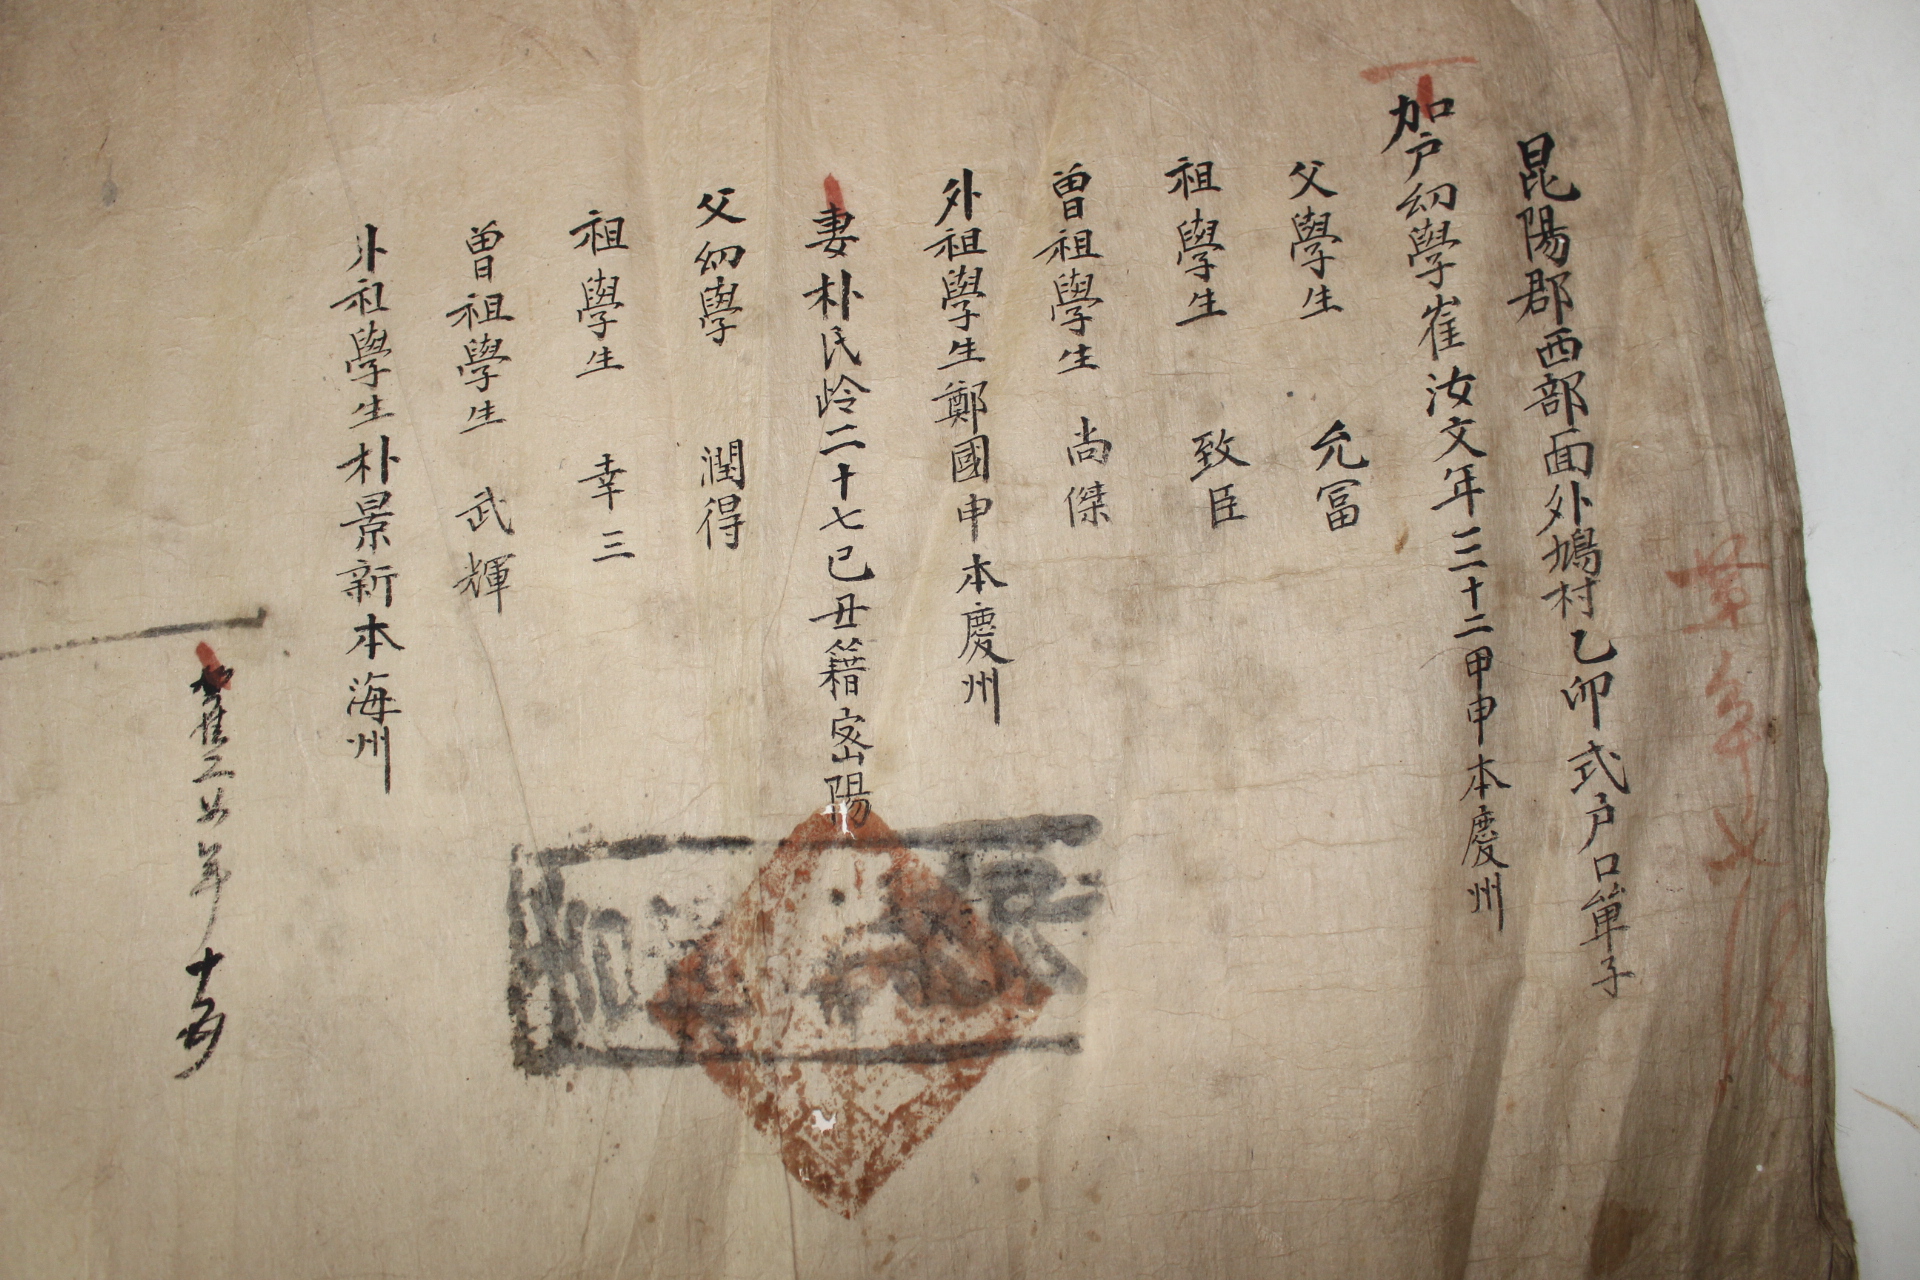 昆陽郡西部面外鳩村乙卯式戶口單子
加戶幼學崔汝文年三十二甲申本慶州
父學生 允冨
祖學生 致臣
曾祖學生 尚傑
外祖學生鄭國申本慶州
妻朴氏岭二十七己丑籍密陽
父幼學 潤得
祖學生 幸三
曾祖學生 武輝
外祖學生朴景新本海州
年十五